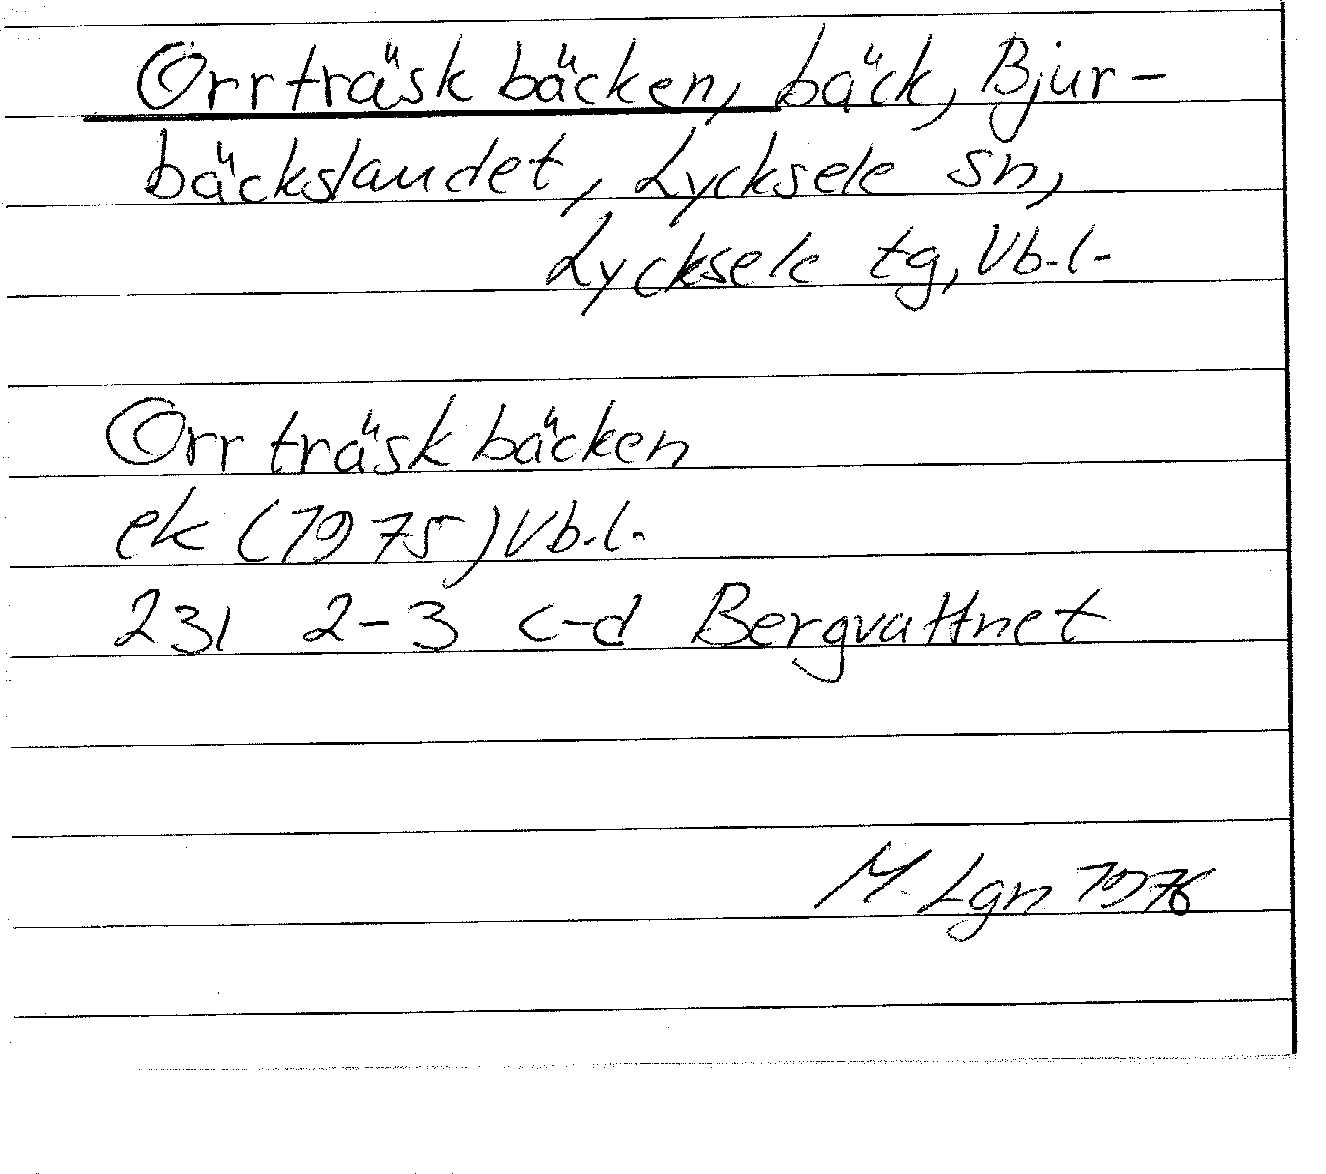 Orrträskbäcken, bäck, Bjur-
bäckslandet, Lycksele sn,
Lycksele tg, Vb.l.
Orrträskbäcken
ek (1975) Vb.l.
231 2-3 c-d Bergvattnet
M. Lgn 1976